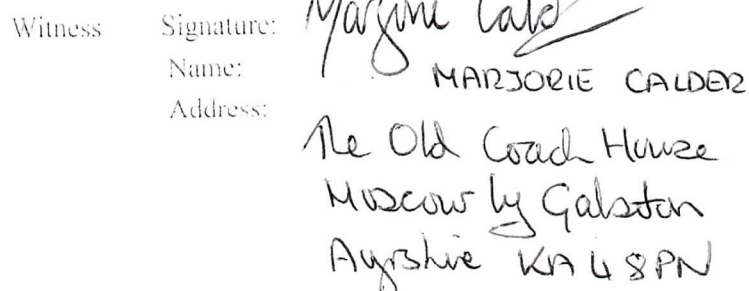 Witness Signature: Marjorie Calder
Name: MARJORIE CALDER
Address:
The Old Coach House
Moscow by Galston
Ayrshire KA4 8PN